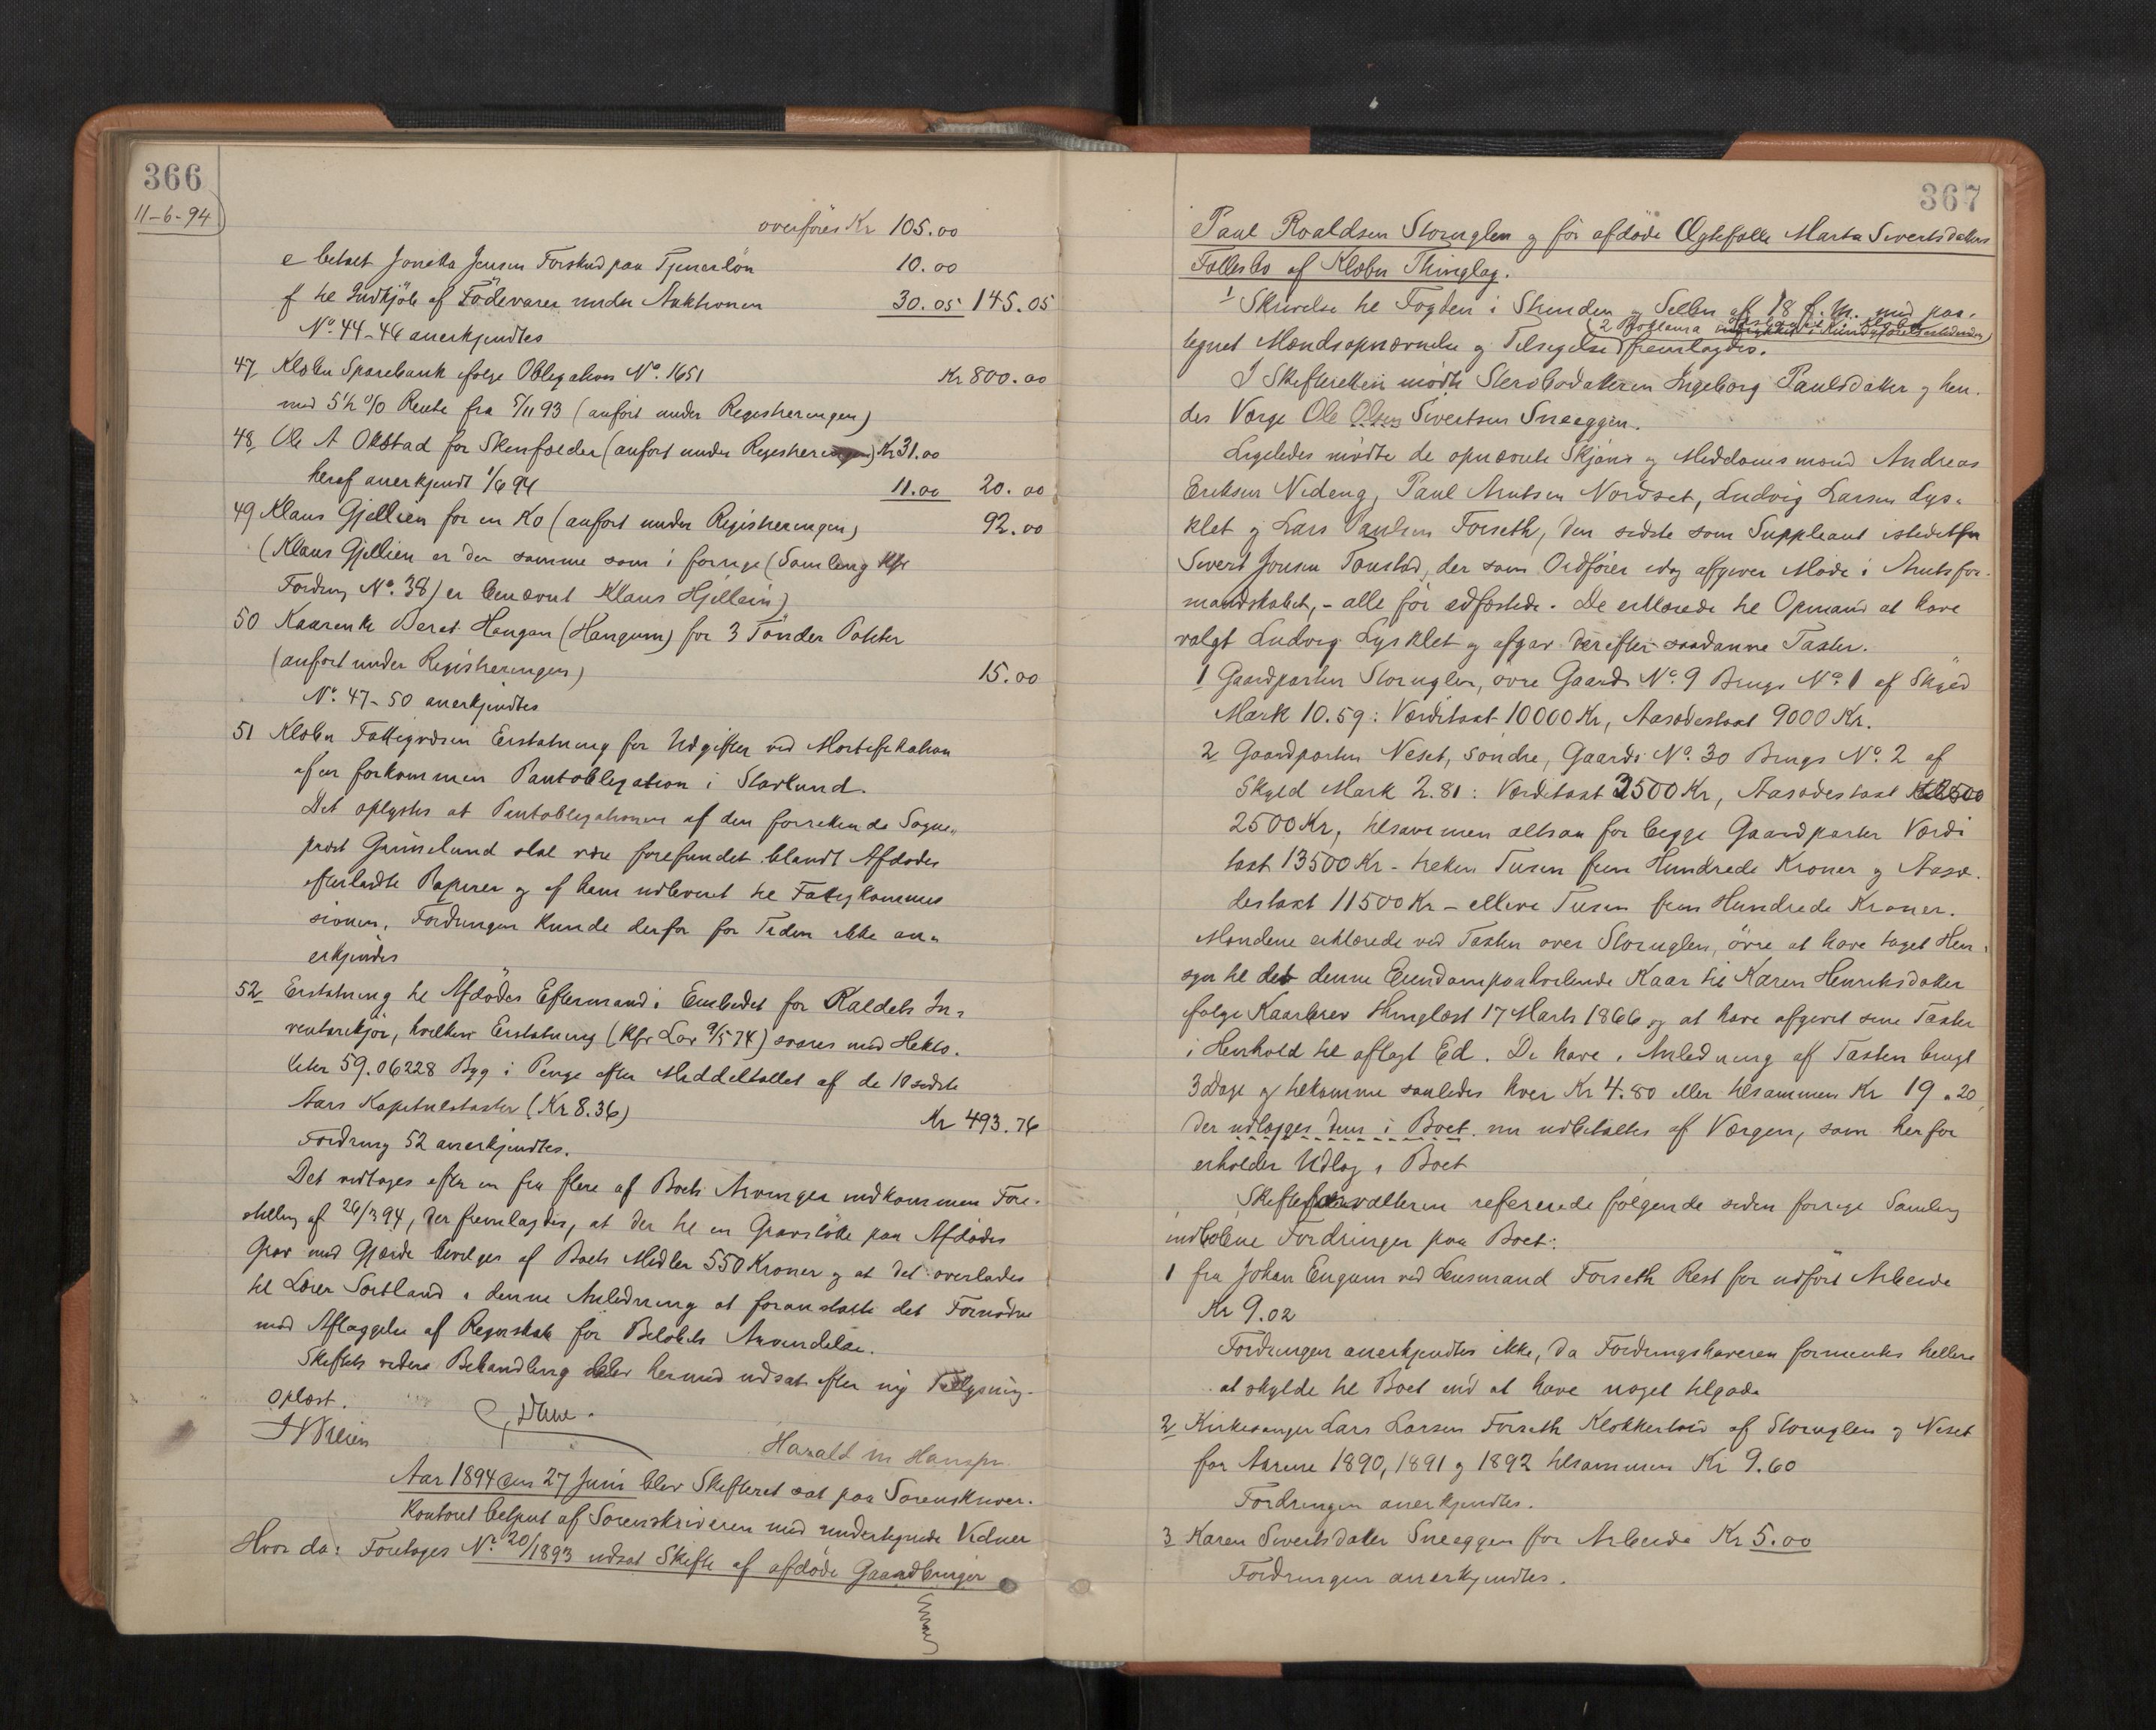 366
11-6-94
overføres Kr 105.00
e betalt Jonetta Jensen Forskud paa Tjenerløn 10.00
f til Indkjøb af Fødevarer under Auktionen 30.05 145.05
No. 44-46 anerkjendtes
47 Klæbu Sparebank ifølge Obligation No. 1651 Kr 800.00
med 5½ % Rente fra 5/11 93 (anført under Registreringen)
48 Ole A Okstad for Skenfoeder (anført under Registreringen) Kr 31.00
heraf anerkjendt 1/6 94 11.00 20.00
49 Klaus Gjellien for en Ko (anført under Registreringen) 92.00
(Klaus Gjellien er den samme som i forrige Samling kfr
Fordring No. 38) er benævnt Klaus Hjellein)
50 Kaarenke Beret Haugan (Haugum) for 3 Tønder Poteter
(anført under Registreringen) 15.00
No. 47-50 anerkjendtes
51 Klæbu Fattigvæsen Erstatning for Udgifter ved Mortifikation
af en forkommen Pantobligation i Storlund.
Det oplystes at Pantobligationen af den forrettende Sogne-
prest Grimelund skal være forefundet blandt Afdødes
efterladte Papirer og af ham udleveret til Fattigkommis
sionen. Fordringen kunde derfor for Tiden ikke an-
erkjendes
52 Erstatning til Afdødes Eftermand i Embedet for Kaldets In-
ventariekjør, hvilken Erstatning (kfr Lov 9/5 74) svares med Hekto-
liter 59.06228 Byg i Penge efter Middeltallet af de 10 sidste
Aars Kapitulstakster (Kr 8.36) Kr 493.76
Fordring 52 anerkjendtes.
Det vedtoges efter en fra flere af Boets Arvinger indkommen Fore-
stilling af 26/3 94, der fremlagdes, at der til en Gravstøtte paa Afdødes
Grav med Gjærde bevilges af Boets Midler 550 Kroner og at det overlades
til Lærer Sortland i denne Anledning at foranstalte det Fornødne
mod Aflæggelse af Regnskab for Beløbets Anvendelse.
Skiftets videre Behandling blev hermed udsat efter ny Tillysning.
Oplæst.
Harald M Hansen
Aar 1894 den 27 Juni blev Skifteret sat paa Sorenskriver-
kontoret betjent af Sorenskriveren med undertegnede Vidner
Hvor da: Foretoges No. 20/1893 udsat Skifte af afdøde Gaardbruger
367
Paul Roaldsen Storuglen og før afdøde Ægtefælle Marta Sivertsdatters
Fællesbo af Klæbu Thinglag.
1 Skrivelse til Fogden i Strinden og Selbu af 18 f. M. med paa-
2 Proklama
tegnet Mændsopnævnelse og Tilsigelse fremlagdes.
I Skifteretten mødte Stervbodatteren Ingeborg Paulsdatter og hen-
des Verge Ole Olsen Sivertsen Sneeggen.
Ligeledes mødte de opnævnte Skjøns og Meddomsmænd Andreas
Eriksen Nideng, Paul Arntsen Nordset, Ludvig Larsen Lys-
klet og Lars Paulsen Forseth, den sidste som Suppleant istedetfor
Sivert Jonsen Tanstad, der som Ordfører idag afgiver Møde i Amtsfor-
mandskabet, - alle før edfæstede. De erklærede til Opmand at have
valgt Ludvig Lysklet og afgav derefter saadanne Taxter.
1 Gaardparten Storuglen, øvre Gaards No. 9 Brugs No. 1 af Skyld
Mark 10.59: Værditaxt 10000 Kr, Aasædestaxt 9000 Kr.
2 Gaardparten Neset, søndre, Gaards No. 30 Brugs No. 2 af
Skyld Mark 2.81: Værditaxt 3500 Kr, Aasædestaxt
2500 Kr, tilsammen altsaa for begge Gaardparter Værdi
taxt 13500 Kr - tretten Tusen fem Hundrede Kroner og Aasæ-
destaxt 11500 Kr - elleve Tusen fem Hundrede Kroner.
Mændene erklærede ved Taxten over Storuglen, øvre at have taget Hen-
syn til det denne Eiendom paahvilende Kaar til Karen Henriksdatter
ifølge Kaarbrev thinglæst 17 Marts 1866 og at have afgivet sine Taxter
i Henhold til aflagt Ed. De have i Anledning af Taxten brugt
3 Dage og tilkomme saaledes hver Kr 4.80 eller tilsammen Kr 19.20,
der udlægges dem i Boet nu udbetaltes af Vergen, som herfor
erholder Udlæg i Boet
Skifteforvalteren refererede følgende siden forrige Samling
indkomne Fordringer paa Boet:
1 fra Johan Engum ved Lensmand Forseth Rest for udført Arbeide
Kr 9.02
Fordringen anerkjendtes ikke, da Fordringshaveren formentes hellere
at skylde til Boet end at have noget tilgode
2 Kirkesanger Lars Larsen Forseth Klokkertold af Storuglen og Neset
for Aarene 1890, 1891 og 1892 tilsammen Kr 9.60
Fordringen anerkjendtes.
3 Karen Sivertsdatter Sneeggen for Arbeide Kr 5.00
Fordringen anerkjendtes.